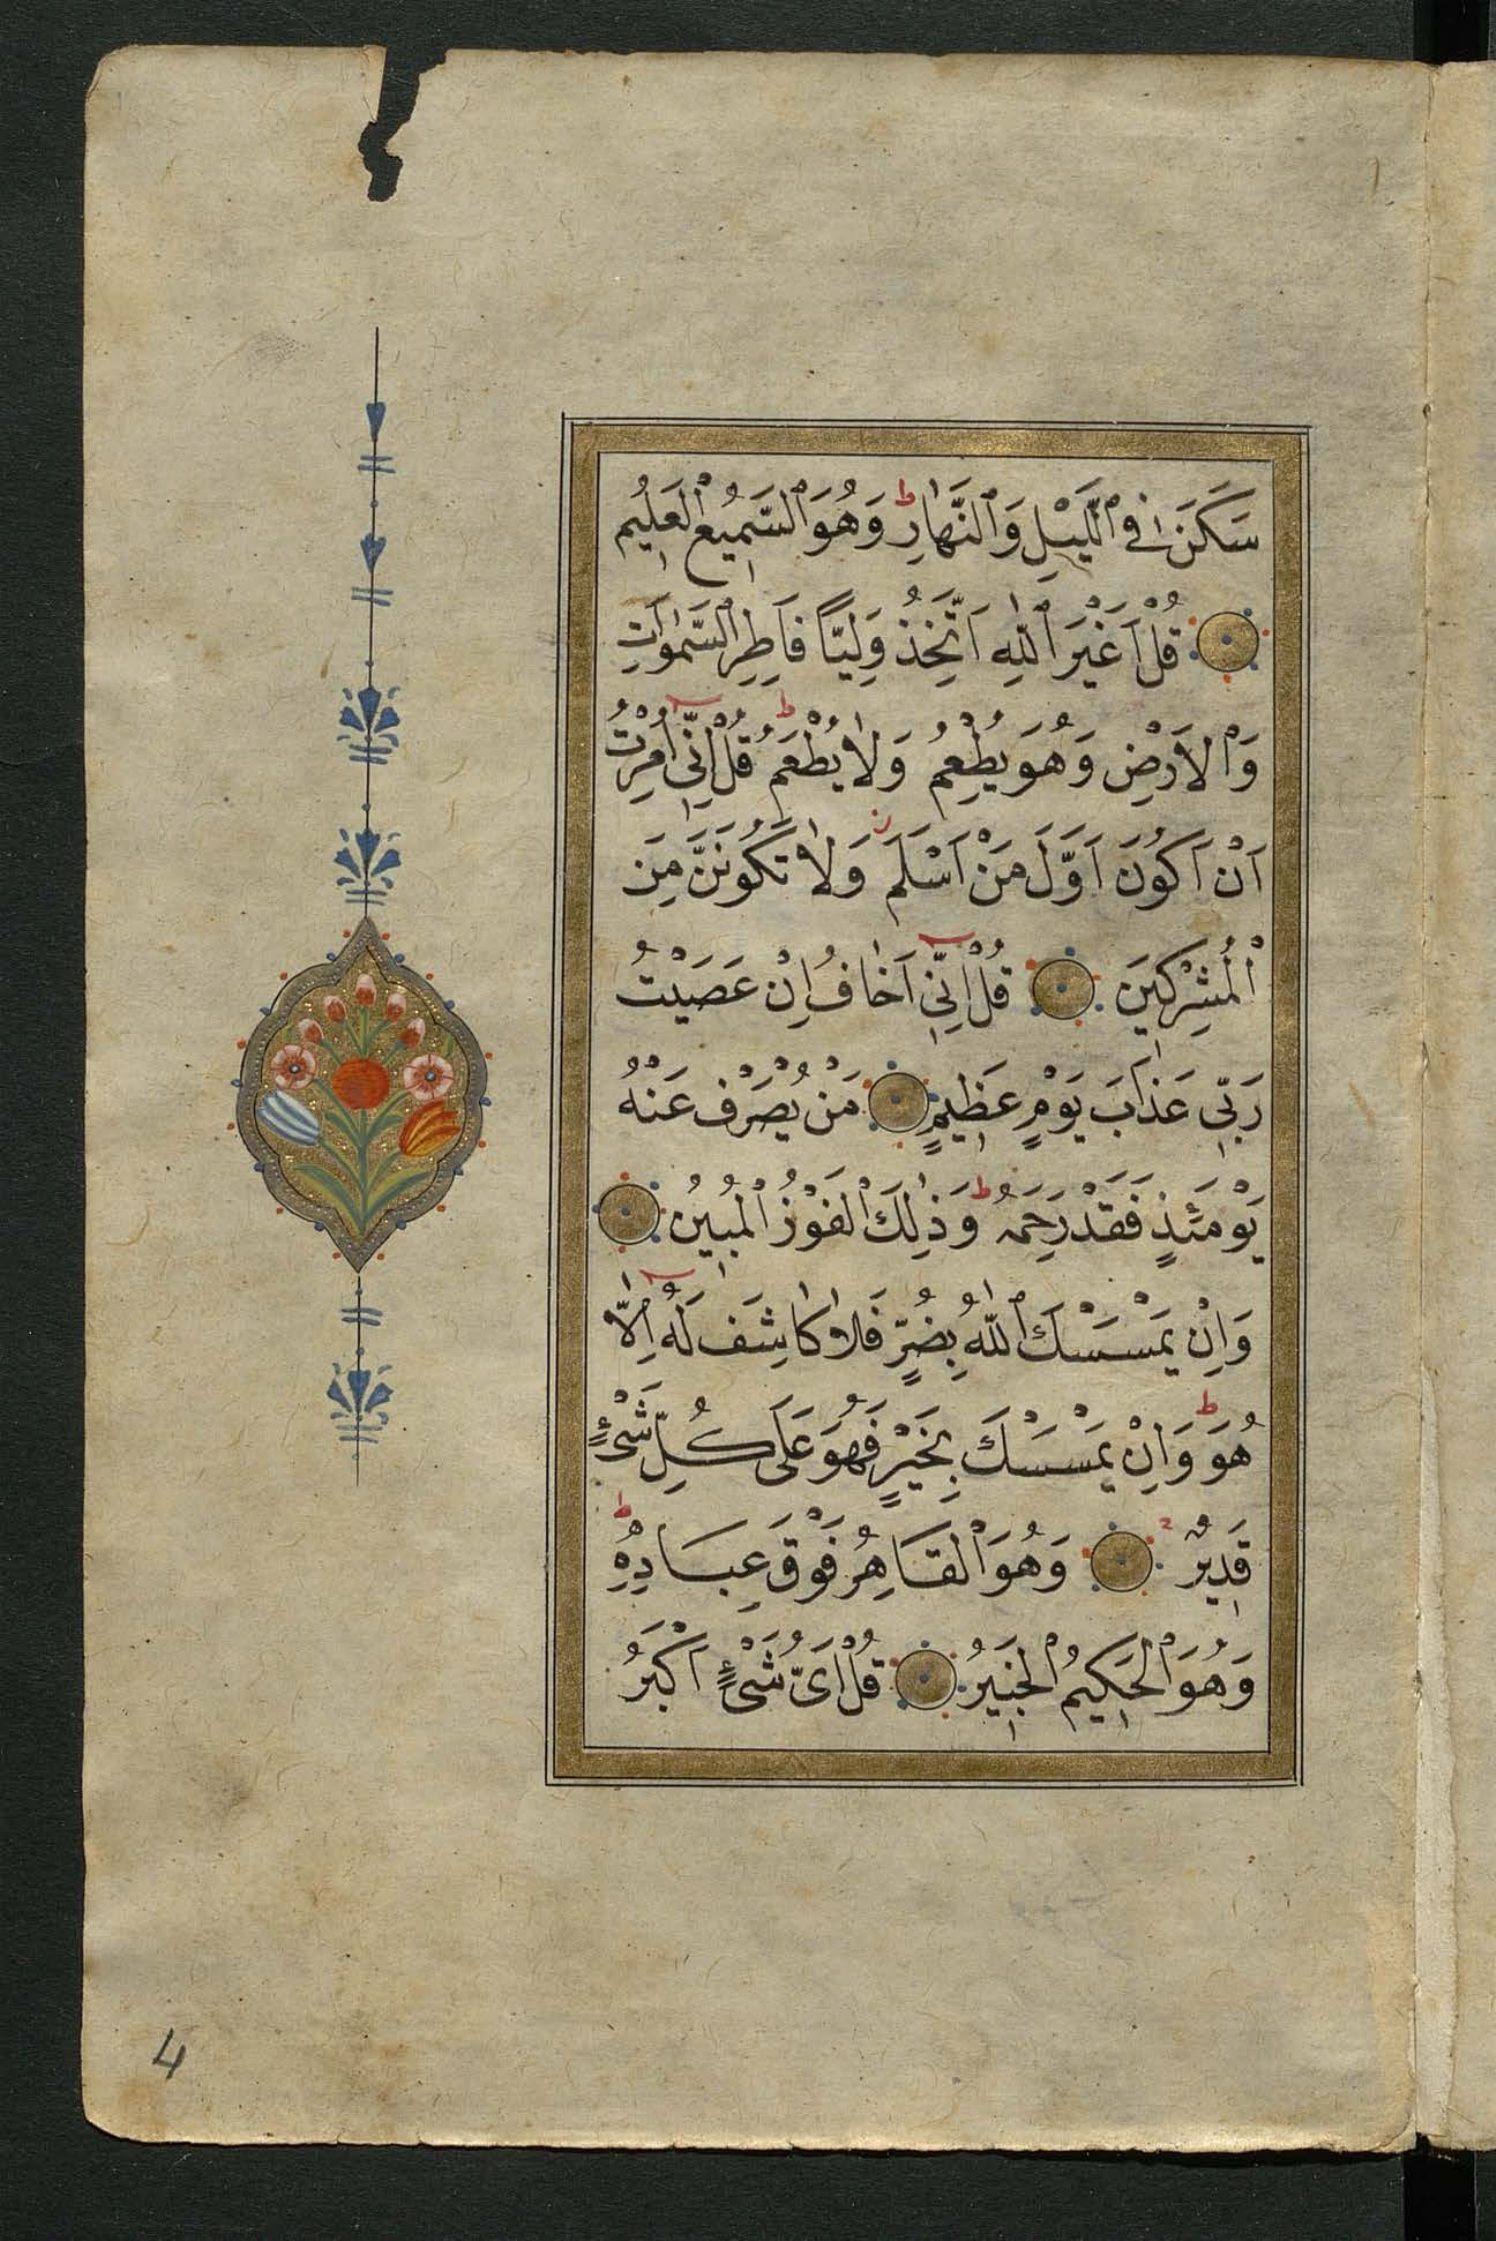 سَكَنَ فِي ٱلَّيْلِ وَٱلنَّهَارِ ط وَهُوَ ٱلسَّمِيعُ ٱلْعَلِيمُ
قُلْ اَغَيْرَ ٱللّٰهِ اَتَّخِذُ وَلِيًّا فَاطِرِ ٱلسَّمٰوَاتِ
وَٱلْاَرْضِ وَهُوَ يُطْعِمُ وَلَا يُطْعَمُ ط قُلْ اِنِّىٓ اُمِرْتُ
اَنْ اَكُونَ اَوَّلَ مَنْ اَسْلَمَ ز وَلَا تَكُونَنَّ مِنَ
ٱلْمُشْرِكِينَ قُلْ اِنِّىٓ اَخَافُ اِنْ عَصَيْتُ
رَبِّى عَذَابَ يَوْمٍ عَظِيمٍ مَنْ يُصْرَفْ عَنْهُ
يَوْمَئِذٍ فَقَدْ رَحِمَهُ ط وَذٰلِكَ ٱلْفَوْزُ ٱلْمُبِينُ
وَاِنْ يَمْسَسْكَ ٱللّٰهُ بِضُرٍّ فَلَا كَاشِفَ لَهُٓ اِلَّا
هُوَ ط وَاِنْ يَمْسَسْكَ بِخَيْرٍ فَهُوَ عَلَى كُلِّ شَىْءٍ
قَدِيرٌ وَهُوَ ٱلْقَاهِرُ فَوْقَ عِبَادِهِ ط
وَهُوَ ٱلْحَكِيمُ ٱلْخَبِيرُ قُلْ اَىُّ شَىْءٍ اَكْبَرُ
4